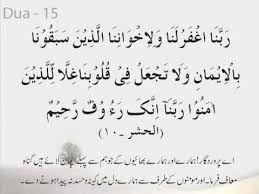 Dua - 15
رَبَّنَا اغْفِرْلَنَا وَلِاِخْوَانِنَا الَّذِيْنَ سَبَقُوْنَا
بِالْاِيْمَانِ وَلَا تَجْعَلْ فِىْ قُلُوْبِنَا غِلًّا لِّلَّذِيْنَ
اٰمَنُوْا رَبَّنَآ اِنَّکَ رَءُ وْفٌ رَّحِيْمٌ
(الحشر ۔١٠)
اے پروردگار! ہمارے اور ہمارے بھائیوں کے جو ہم سے پہلے ایمان لائے ہیں گناہ
معاف فرما۔ اور مومنوں کے طرف سے ہمارے دل میں کینہ و حسد نہ پیدا ہونے دے۔